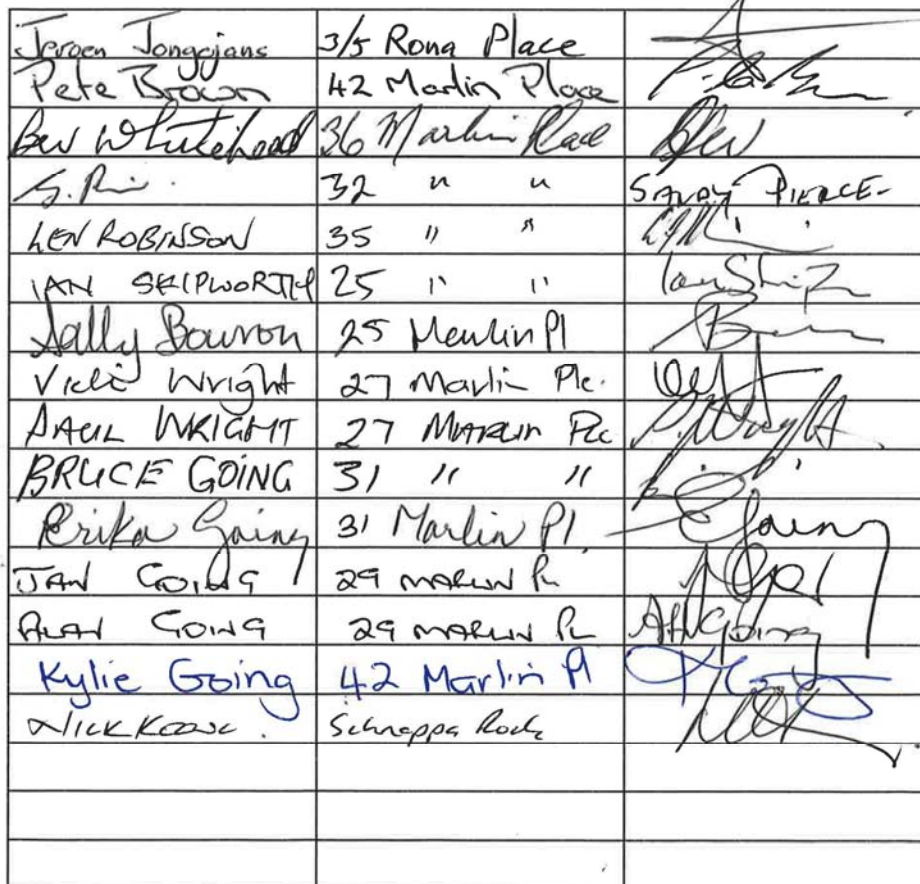 Jeroen Jongejans 3/5 Rona Place
Pete Brown 42 Marlin Place
Bev Whitehead 36 Marlin Place
32 " " SANDY PIERCE
LEN ROBINSON 35 " "
IAN SKIPWORTH 25 " "
Sally Bowron 25 Merlin Pl
Vicki Wright 27 Marlin Plc.
PAUL WRIGHT 27 MARLIN PLC
BRUCE GOING 31 " "
Erika Going 31 Marlin Pl. EGoing
JAN GOING 29 MARLIN PL
ALAN GOING 29 MARLIN PL Going
Kylie Going 42 Marlin Pl
NICK Schnappa Rock